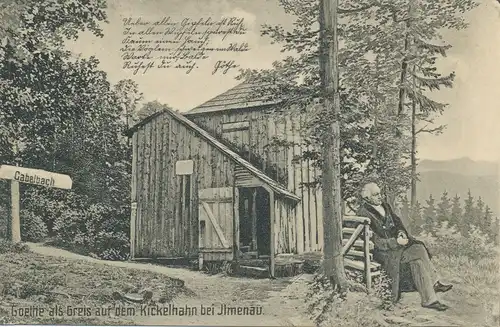 Ueber allen Gipfeln ist Ruh,
In allen Wipfeln spürest du
Kaum einen Hauch
Die Vöglein schweigen im Walde
Warte nur balde
Ruhst du auch. Göthe
Gabelbach
Goethe als Greis auf dem Kickelhahn bei Jlmenau.